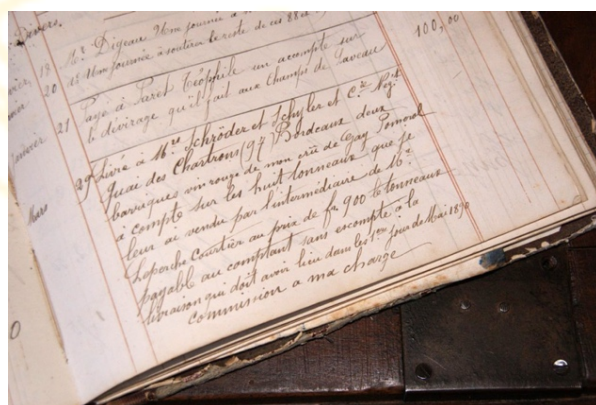 Divers.
18 Mr. Digeau 26m journée à
20 de 16m journée à soutien le reste de ces 88 100,00
21 Payé à Paret Téophile un accompte sur
le dévirage qu'il fait aux Champs de Caveau
29 Livré à Mrs Schröder et Schyler et Cie Negts
Quai des Chartrons (97) Bordeaux deux
barriques vin rouge de mon crû de Gay Pomerol
à compte sur les huit tonneaux que je
leur ai vendu par l'intermédiaire de Mr
Laporche Courtier au prix de fr 900 le tonneaux
payable au comptant sans escompte à la
livraison qui doit avoir lieu dans les 1ers jours de Mai 1890
Commission a ma charge
Mars
0